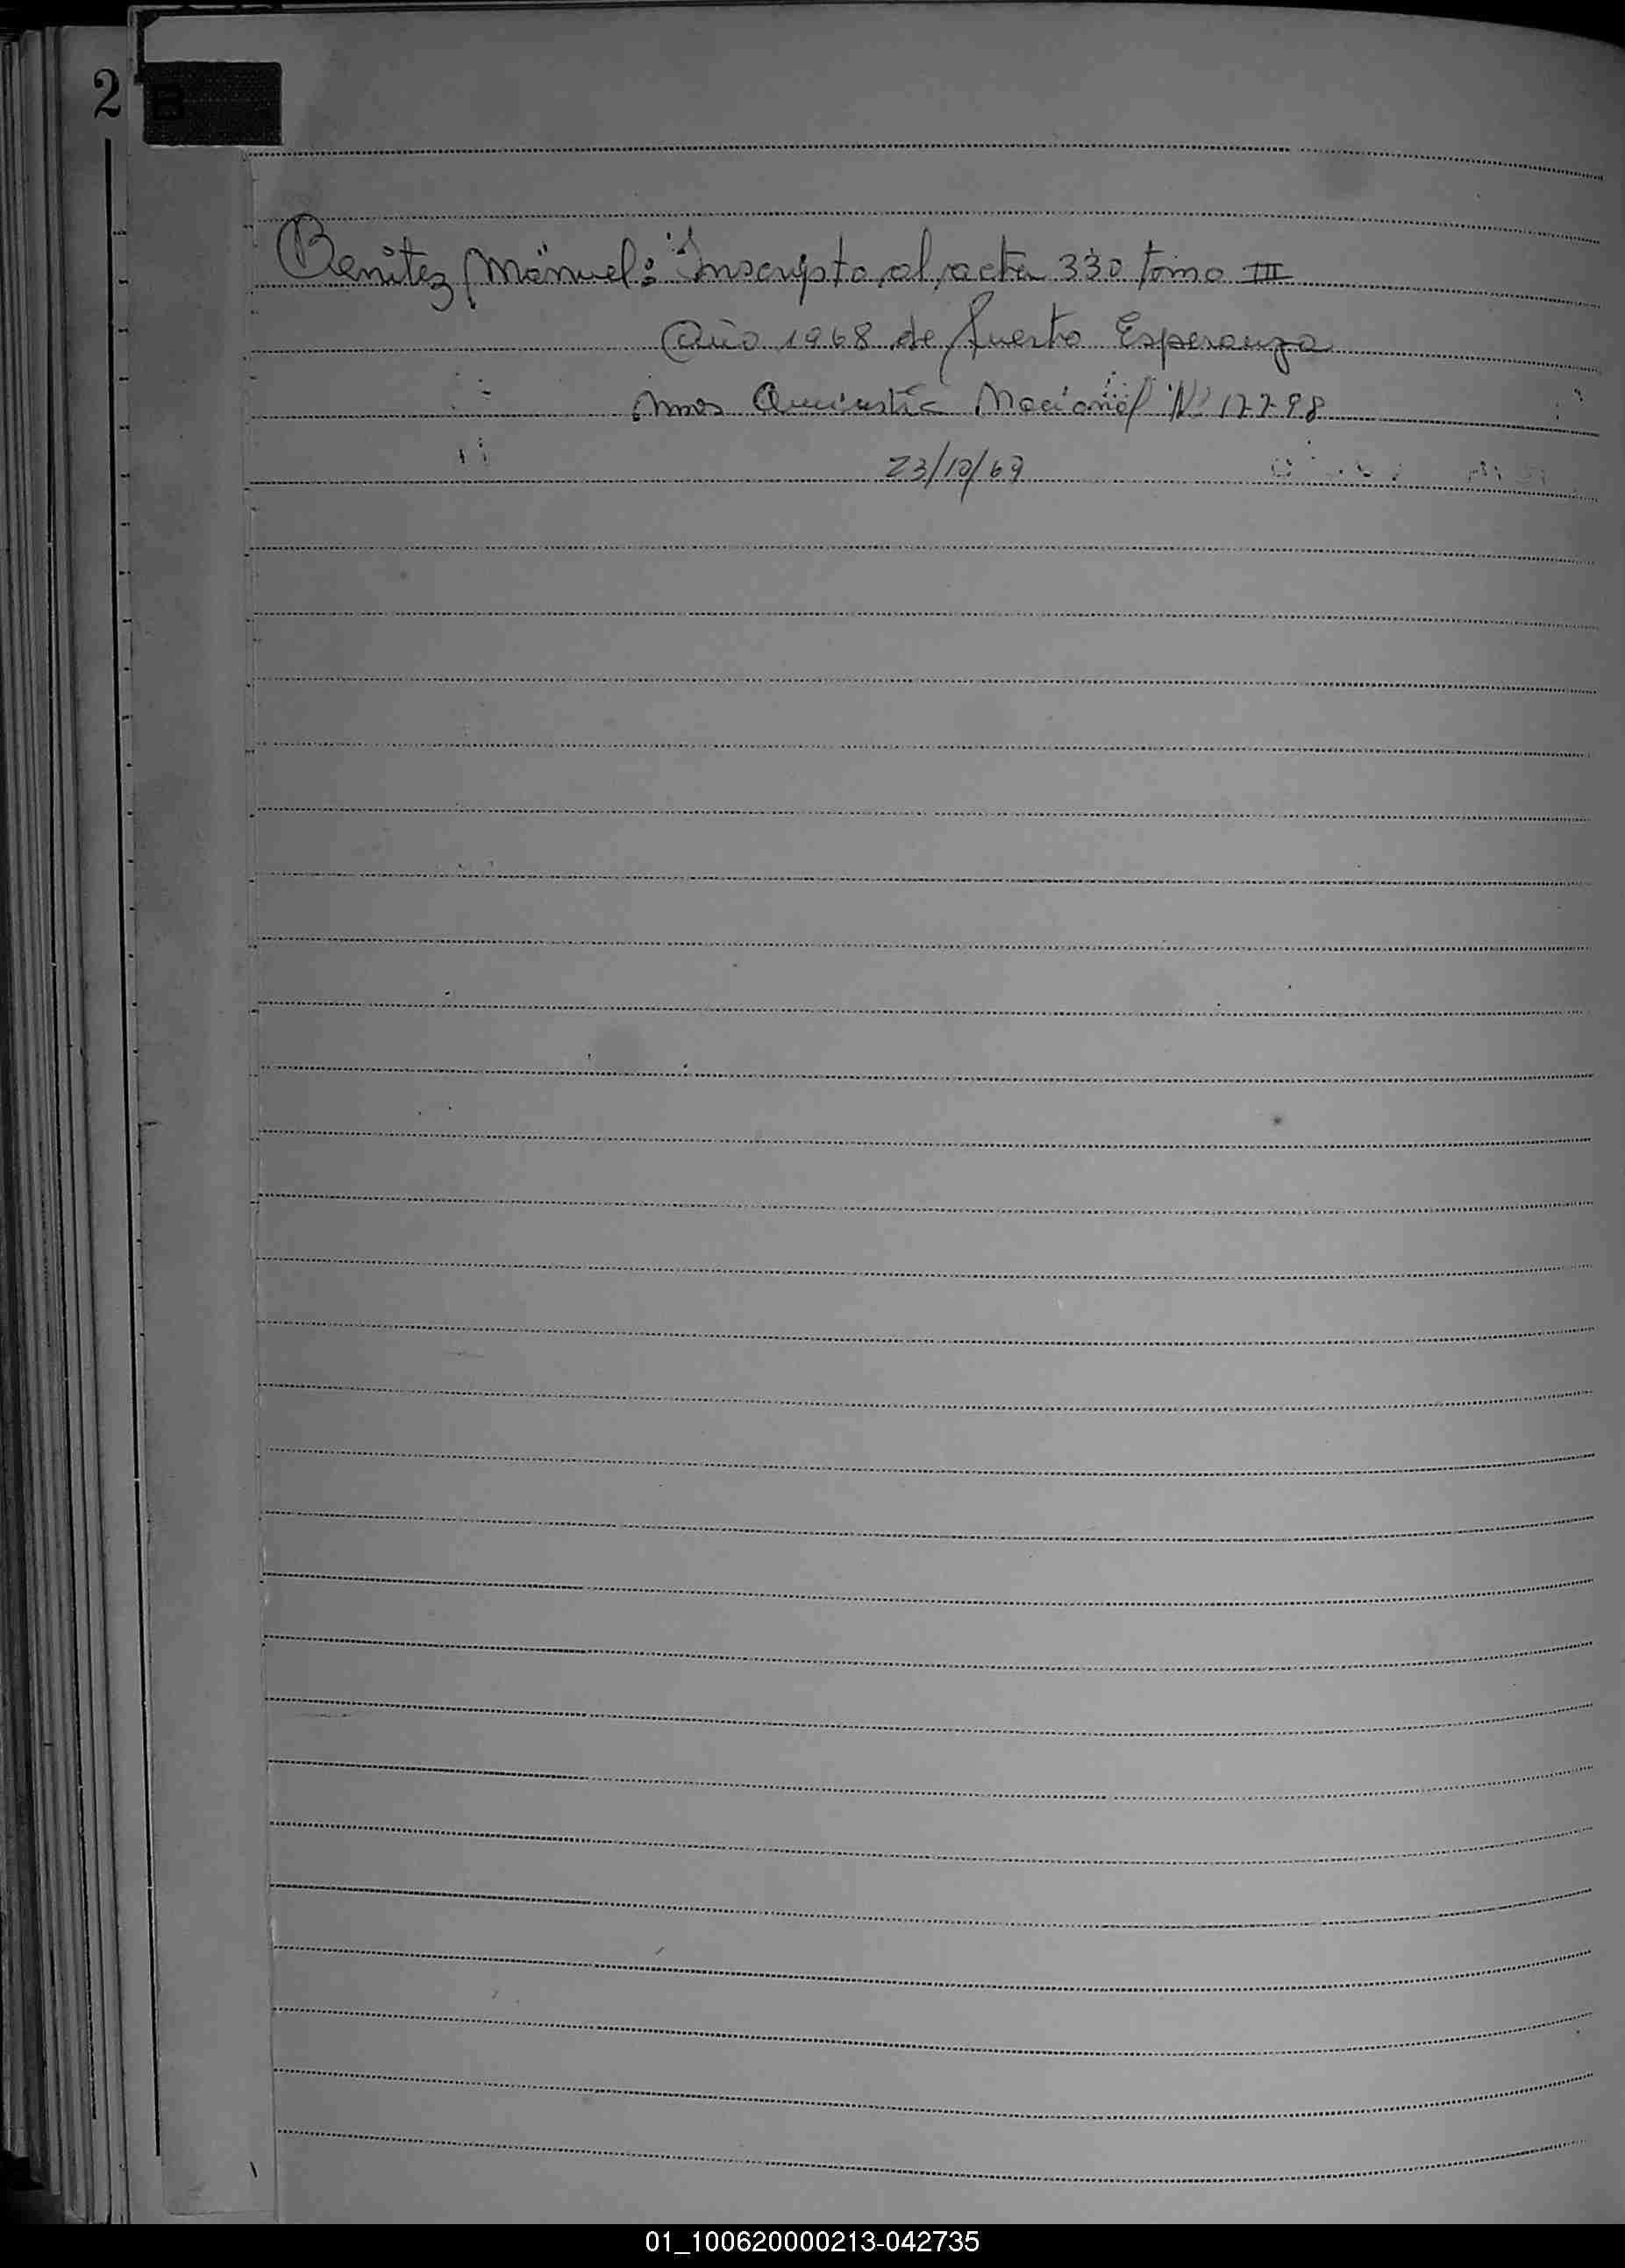 2
B
Benitez Manuel: Inscripto al acta 330 tomo III
Año 1968 de Puerto Esperanza
Mnes Amnistia Nacional Nº 17798
23/10/69
01_100620000213-042735